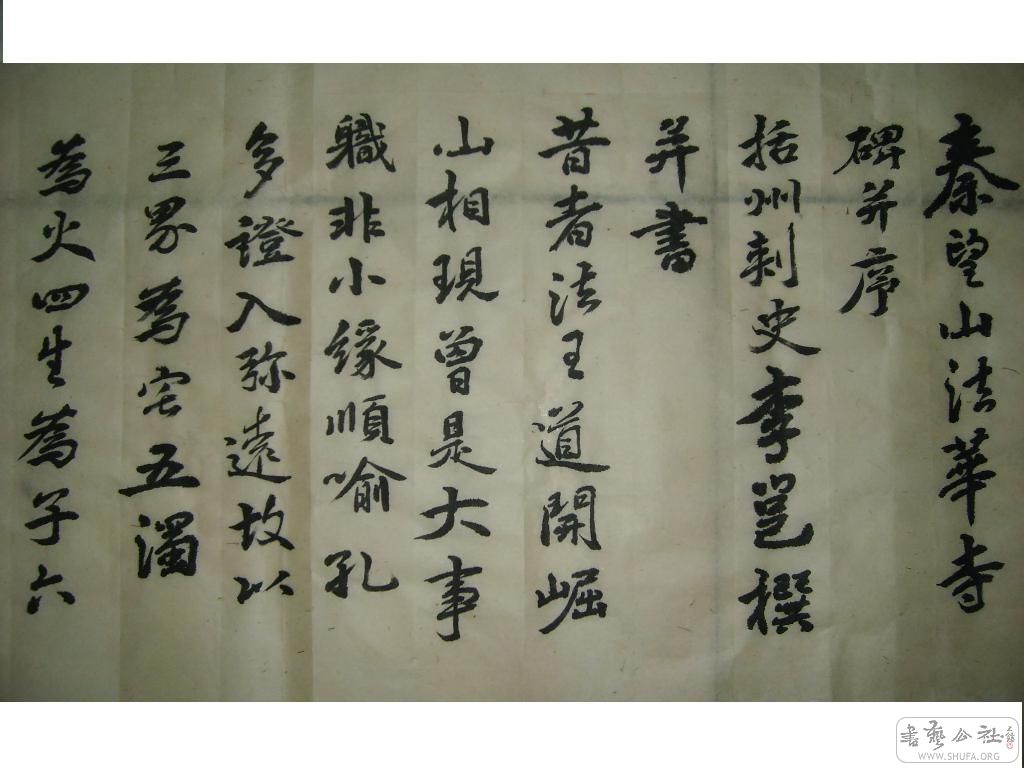 秦望山法華寺
碑并序
括州刺史李邕撰
并書
昔者法王道開崛
山相現曾是大事
職非小緣順喻孔
多證入弥遠故以
三界為宅五濁
為火四生為子六
書藝公社
WWW.SHUFA.ORG